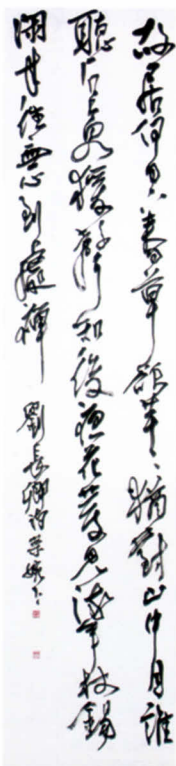 故居何日下春草欲芊々猶對山中月誰
聽石上泉猿聲知後夜花發見流年杖錫
閑來往無心到處禪 劉長卿詩